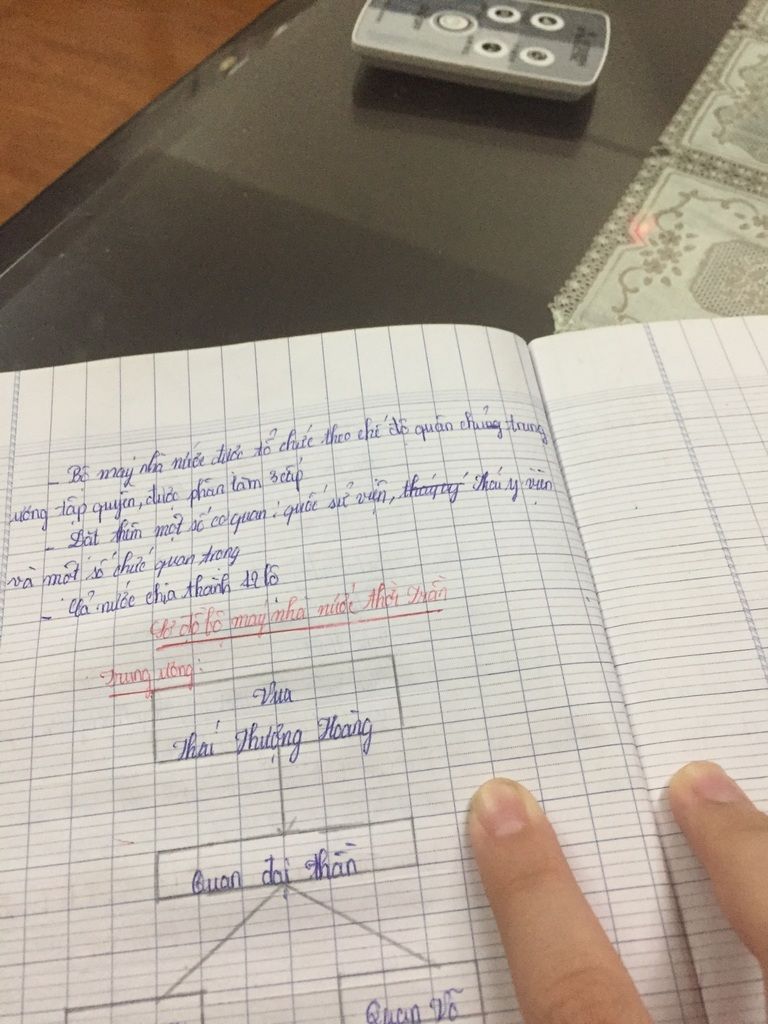 - Bộ máy nhà nước được tổ chức theo chế độ quân chủ trung
ương tập quyền, được phân làm 3 cấp
- Đặt thêm một số cơ quan: quốc sử viện, Thái y viện
và một số chức quan trong
- Cả nước chia thành 12 lộ
Sơ đồ bộ máy nhà nước thời Trần
Trung ương:
Vua
Thái Thượng Hoàng
Quan đại thần
Quan Võ